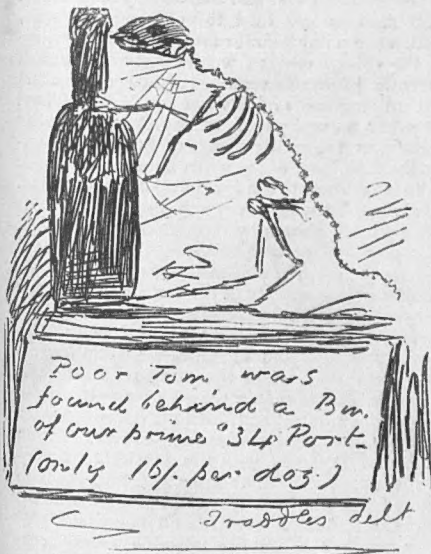 Poor Tom was
found behind a Bin
of our prime '34 Port
(only 16/. per doz.)
Traddles delt